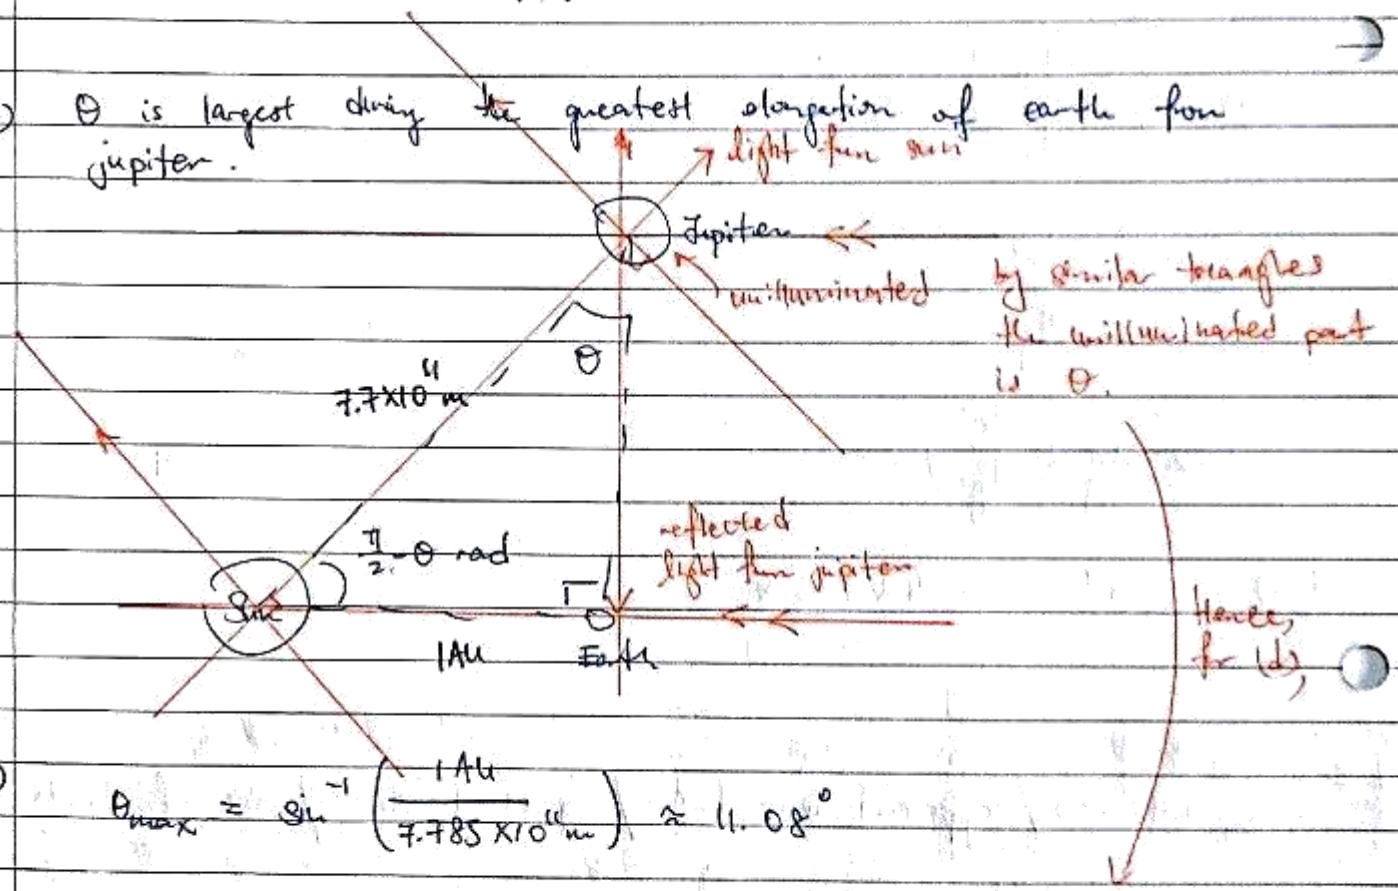 θ is largest during the greatest elongation of earth from
jupiter.
light from sun
Jupiter
unilluminated
by similar triangles
the unilluminated part
is θ.
θ
7.7×10¹¹ m
π/2 - θ rad
reflected
light from jupiter
Sun
1AU
Earth
Hence,
for (d),
θmax = sin⁻¹ (1AU / 7.785 ×10¹¹ m) ≈ 11.08°